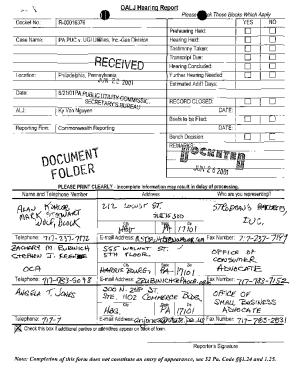 OALJ Hearing Report
Please Check Those Blocks Which Apply
Docket No: R-00016376
YES NO
Prehearing Held:
Case Name: IPA PUC v. UGI Utilities, Inc.-Gas Division
Hearing Held:
Testimony Taken:
RECEIVED
Transcript Due:
Hearing Concluded:
Location: Philadelphia, Pennsylvania
Further Hearing Needed:
JUN 22 2001
Estimated Add'l Days:
Date: 6/21/01
PA PUBLIC UTILITY COMMISSION
SECRETARY'S BUREAU
RECORD CLOSED:
ALJ: Ky Van Nguyen
DATE:
Briefs to be Filed:
Reporting Firm: Commonwealth Reporting
DATE:
Bench Decision:
REMARKS:
DOCKETED
DOCUMENT
FOLDER
JUN 26 2001
PLEASE PRINT CLEARLY - Incomplete information may result in delay of processing.
Name and Telephone Number Address Who are you representing?
ALAN
MARK STEWART
WOLF, BLOCK
212 LOCUST ST.
SUITE 300
HBG PA 17101
Telephone: 717-237-7172 E-mail Address: Fax Number:
ZACHARY M. RUBINICH
STEPHEN J.
OCA
555 WALNUT ST
5TH FLOOR,
HARRISBURG, PA 17101
OFFICE OF
CONSUMER
ADVOCATE
Telephone: 717-783-5048 E-mail Address: Fax Number: 717-783-7152
ANGELA T. JONES
300 N. 2ND ST
STE 1102 COMMERCE BLDG.
HBG. PA 17101
OFFICE OF
SMALL BUSINESS
ADVOCATE
Telephone: 717-7 E-mail Address: Fax Number: 717-783-2831
Check this box if additional parties or attendees appear on back of form.
Reporter's Signature
Note: Completion of this form does not constitute an entry of appearance, see 52 Pa. Code §§1.24 and 1.25.